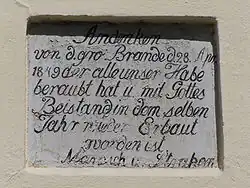 Andenken
von d. gro. Brande d. 28. Apr.
1849 der alle unser Habe
beraubt hat u. mit Gottes
Beistand in dem selben
Jahr wieder Erbaut
worden ist